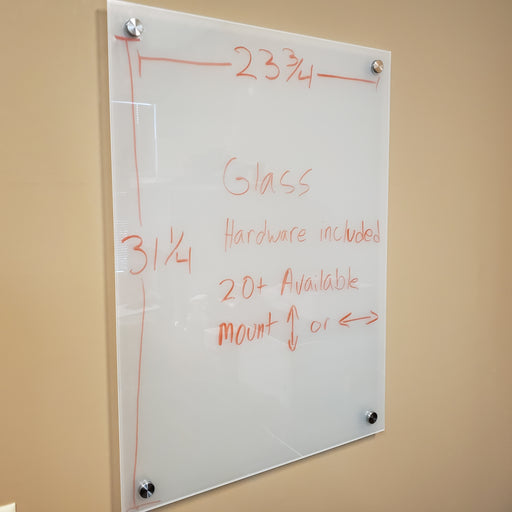 23 3/4
31 1/4
Glass
Hardware included
20+ Available
mount ↕ or ↔